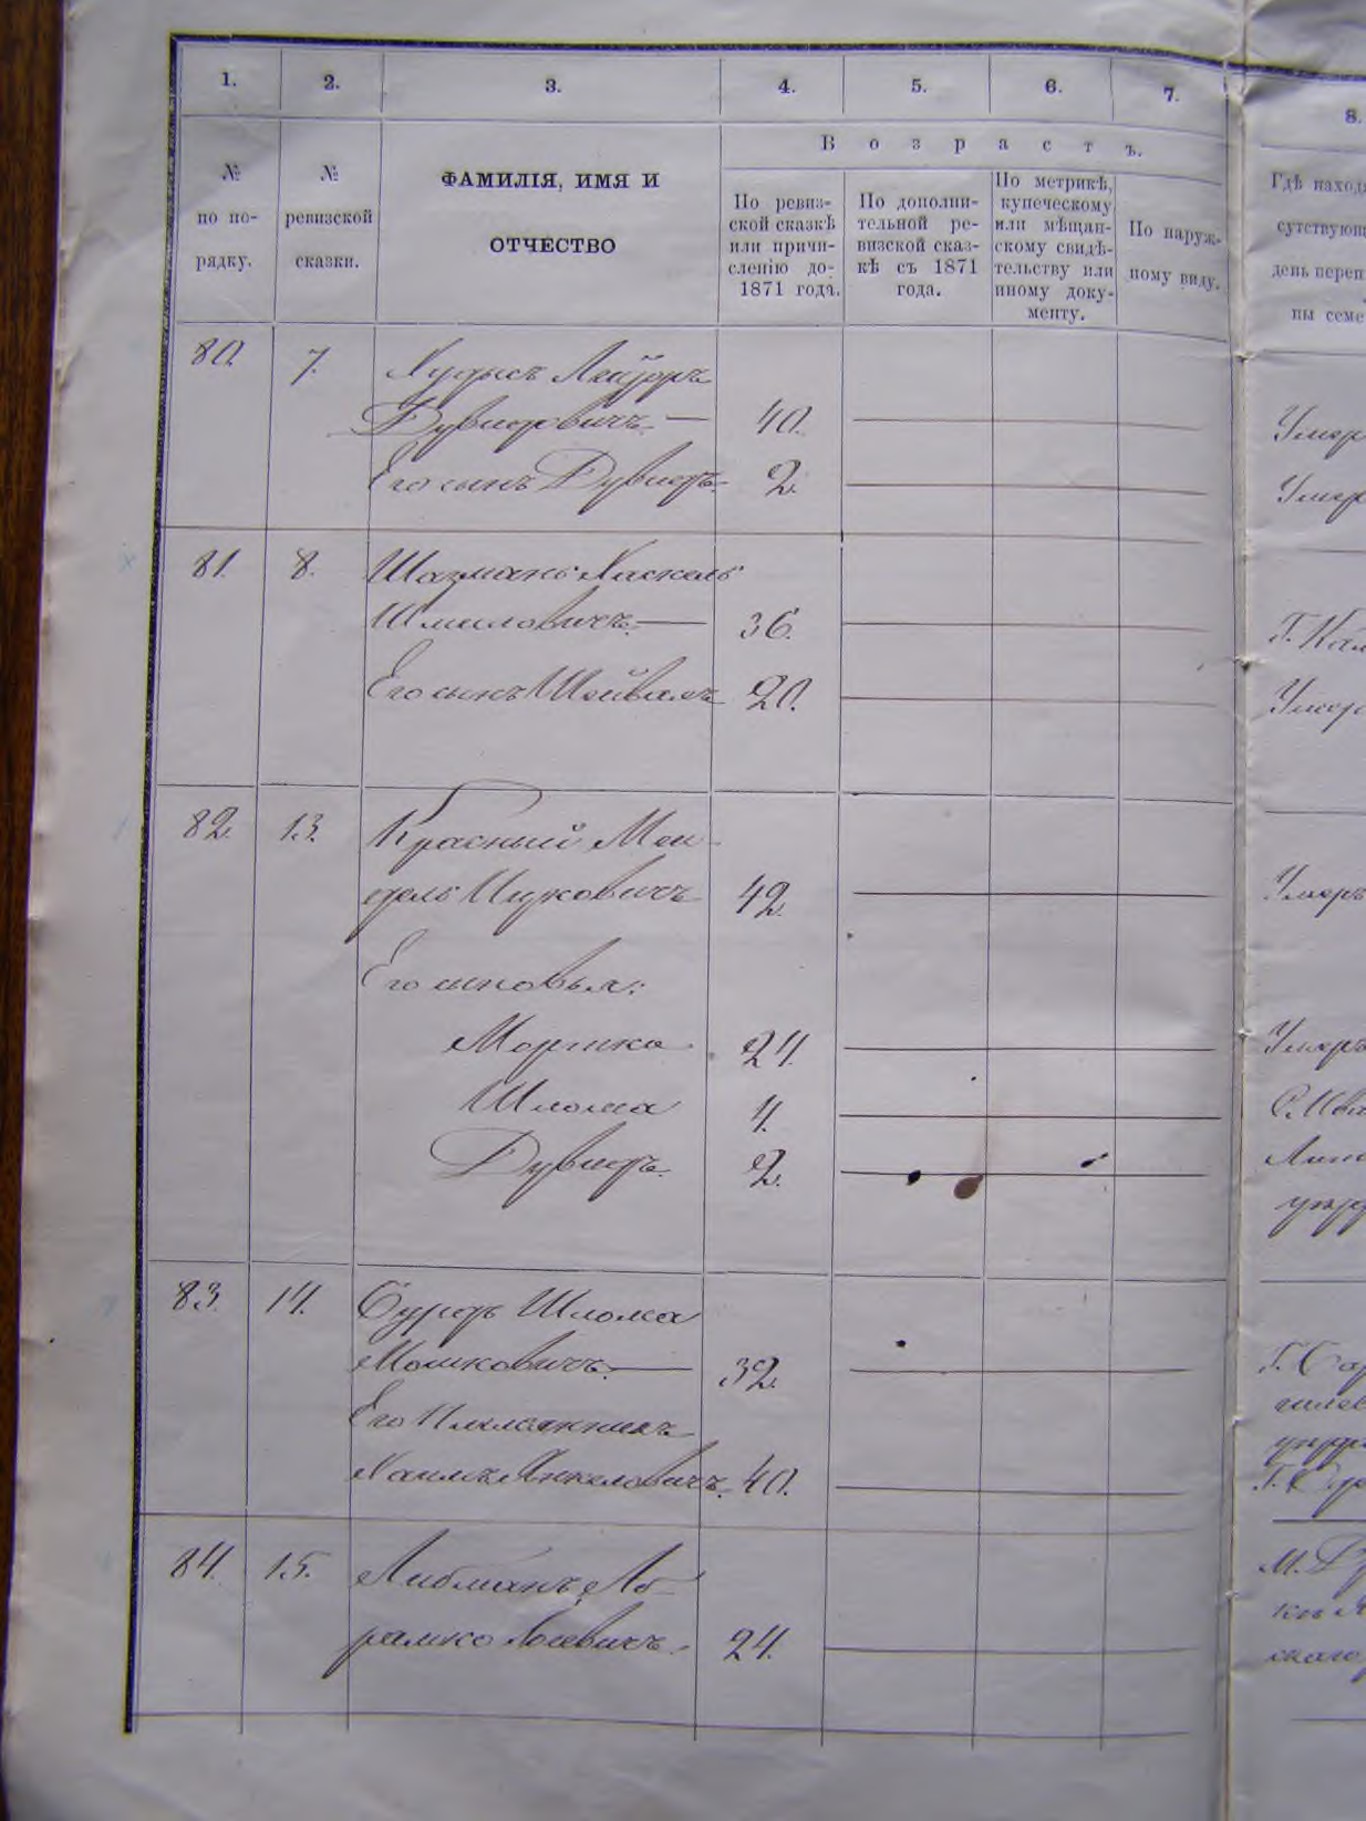 1. 2. 3. 4. 5. 6. 7. 8.
Возрастъ.
№ по по-рядку.
№ ревизской сказки.
ФАМИЛІЯ, ИМЯ И
ОТЧЕСТВО
По ревиз-
ской сказкѣ
или причи-
сленію до
1871 года.
По дополни-
тельной ре-
визской сказ-
кѣ съ 1871
года.
По метрикѣ,
купеческому
или мѣщан-
скому свидѣ-
тельству или
иному доку-
менту.
По наруж-
ному виду.
Гдѣ наход
сутствующ
день переп
ны семе
80. 7. Худысъ Лейзоръ
Дувидовичъ — 40. Умер
Его сынъ Дувидъ 2. Умер
81. 8. Шахманъ Хаскель
Шмиловичъ — 36. Г. Кам
Его сынъ Шейвахъ 20. Умер
82. 13. Красный Мен-
дель Ицковичъ 42. Умеръ
Его сыновья:
Мошко 24. Умеръ
Шлома 4.
Дувидъ 2.
83. 14. Шлома
Мошковичъ — 32.
Его племянникъ
Хаимъ Янкеловичъ 40.
84. 15. Либманъ Аб-
рамко 24.